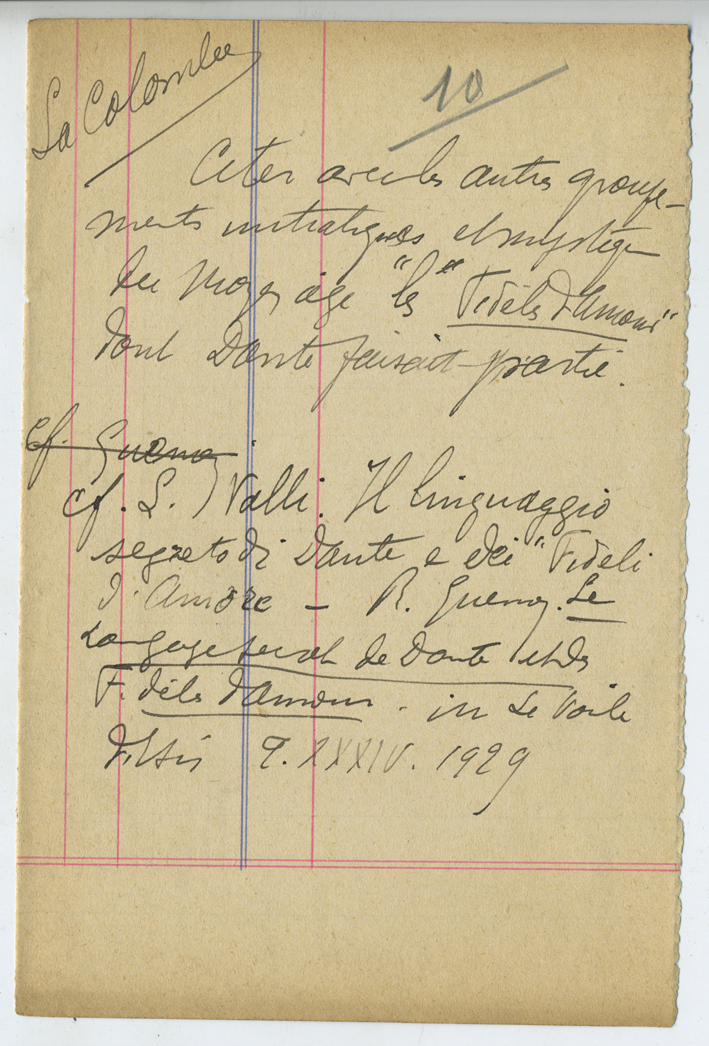 La Colombe
10
Citer avec les autres groupe-
ments initiatiques et mystiques
du Moyen âge "les" "Fidèles d'Amour"
dont Dante faisait partie.
cf. Guenon
cf. L. Valli. Il linguaggio
segreto di Dante e dei "Fideli
d'Amore – R. Guenon. Le
Langage secret de Dante et des
Fidèles d'Amour. in Le Voile
d'Isis T. XXXIV. 1929